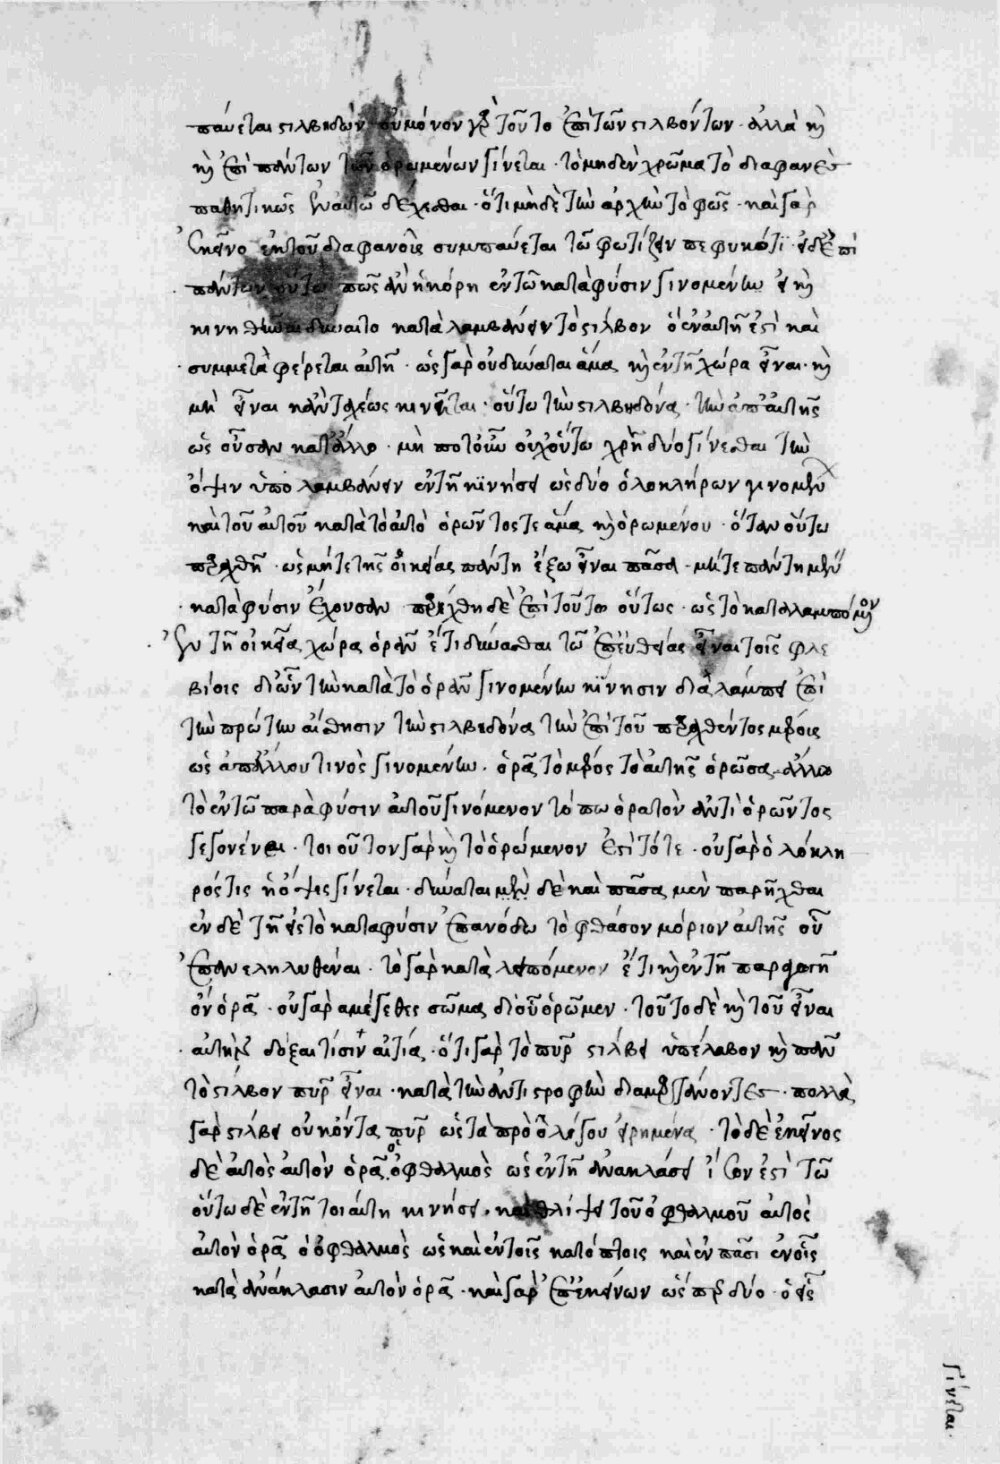 παύεται στιλβηδών· οὐ μόνον γὰρ τοῦτο ἐπὶ τῶν στιλβόντων· ἀλλὰ κὶ
κὶ ἐπὶ πάντων τῶν ὁρωμένων γίνεται· τὸ μηδὲν χρῶμα τὸ διαφανὲς
παθητικῶς δέχεσθαι· ὅτι μὴ δὲ τὴν ἀρχὴν τὸ φῶς· καὶ γὰρ
ἐκεῖνο ἐκ τοῦ διαφανοῦς συμπαύεται τῶ φωτίζειν πεφυκότι·
πάντων οὕτω πῶς ἂν ἡ κόρη ἐν τῶ κατὰ φύσιν γινομένην
κινηθῆναι δύναιτο καταλαμβάνειν τὸ στίλβον ὁ ἐν αὐτῆ ἐστὶ καὶ
συμμεταφέρεται αὐτῆ· ὡς γὰρ οὐ δύναται ἅμα κὶ ἐν τῆ χώρα εἶναι· κὶ
μὴ εἶναι κἂν ταχέως κινεῖται· οὕτω τὴν στιλβηδόνα· τὴν ἀπ' αὐτῆς
ὡς οὖσαν κατ' ἄλλο· μὴ ποτ' οὖν οὐχ οὕτω χρὴ δύο γίνεσθαι τὴν
ὄψιν ὑπολαμβάνειν ἐν τῆ κϊνήσει ὡς δύο ὁλοκλήρων γινομένων
καὶ τοῦ αὐτοῦ κατὰ τὸ αὐτὸ ὁρῶντος τε ἅμα κὶ ὁρωμένου· ὅταν οὕτω
παραχθῆ· ὡς μήτε τῆς οἰκείας πάντη ἔξω εἶναι πᾶσα· μήτε πάντη μένειν
κατὰ φύσιν ἔχουσαν παρήχθη δὲ ἐπὶ τοῦτο οὕτως· ὡς τὸ καταλαμπόμενον
ἐν τῆ οἰκεία χώρα ὁρᾶν ἔτι δύνασθαι τῶ ἐπ' εὐθείας εἶναι τοῖς φλε
βίοις δι' ὧν τὴν κατὰ τὸ ὁρᾶν γινομένην κϊνησιν διαλάμπει ἐπὶ
τὴν πρώτην αἴσθησιν τὴν στιλβηδόνα τὴν ἐπὶ τοῦ παραχθέντος μέρους
ὡς ἀπ' ἄλλου τινὸς γινομένην· ὁρᾶ τὸ μέρος τὸ αὐτῆς ὁρῶσα ἄλλο
τὸ ἐν τῶ παρὰ φύσιν αὐτοῦ γινόμενον τόπω ὁρατὸν ἀντὶ ὁρῶντος
γεγονέναι· τοιοῦτον γὰρ κὶ τὸ ὁρώμενον ἐστὶ τότε· οὐ γὰρ ὁλόκλη
ρός τις ἡ ὄψις γίνεται· δύναται μὲν δὲ καὶ πᾶσα μὲν παρῆχθαι
ἐν δὲ τῆ εἰς τὸ κατα φύσιν ἐπανόδω τὸ φθάσον μόριον αὐτῆς οὗ
ἐπανεληλυθέναι· τὸ γὰρ καταλειπόμενον ἔτι κὶ ἐν τῆ παραγωγῆ
ὂν ὁρᾶ· οὐ γὰρ ἀμέγεθες σῶμα δι' οὗ ὁρῶμεν· τοῦτο δὲ κὶ τοῦ εἶναι
αὐτὴν δόξαι τισὶν αἰτία· ὅτι γὰρ τὸ πῦρ στίλβει ὑπέλαβον κὶ πᾶν
τὸ στίλβον πῦρ εἶναι· κατὰ τὴν ἀντιστροφὴν διαμαρτάνοντες· πολλὰ
γὰρ στίλβει οὐκ ὄντα πῦρ ὡς τὰ πρὸ ὀλίγου εἰρημένα· τὸ δὲ ἐκεῖνος
δὲ αὐτὸς αὑτὸν ὁρᾶ ὁ ὀφθαλμὸς ὡς ἐν τῆ ἀνακλάσει ἴσον ἐστὶ τῶ
οὕτω δὲ ἐν τῆ τοιαύτη κινήσει· καὶ θλίψει τοῦ ὀφθαλμοῦ αὐτὸς
αὑτὸν ὁρᾶ ὁ ὀφθαλμὸς ὡς καὶ ἐν τοῖς κατόπτροις καὶ ἐν πᾶσι ἐν οἷς
κατὰ ἀνάκλασιν αὑτὸν ὁρᾶ· καὶ γὰρ ἐπ' ἐκείνων ὥσπερ δύο· ὁ εἷς
γίνεται